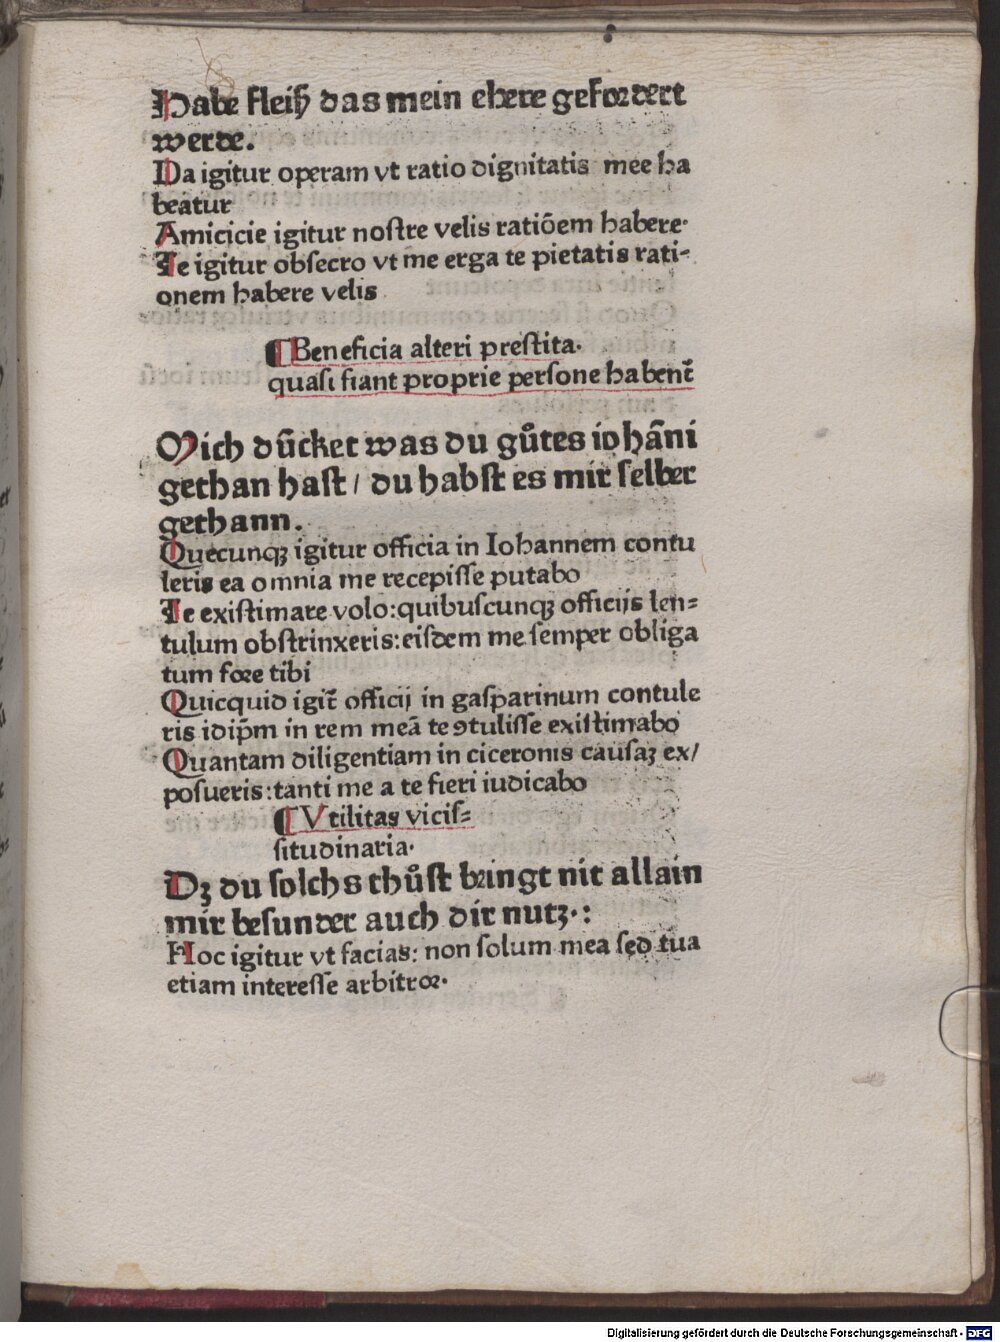 Habe fleiß das mein ehere gefordert
werde.
Da igitur operam vt ratio dignitatis mee ha
beatur
Amicicie igitur noſtre velis ratiōem habere·
Te igitur obſecro vt me erga te pietatis rati⸗
onem habere velis
¶ Beneficia alteri preſtita·
quaſi fiant proprie perſone habent᷑
Mich dūcket was du gůtes iohāni
gethan haſt / du habſt es mir ſelber
gethann.
Quecunqꝫ igitur officia in Iohannem contu
leris ea omnia me recepiſſe putabo
Te exiſtimare volo: quibuſcunqꝫ officijs len⸗
tulum obſtrinxeris: eiſdem me ſemper obliga
tum fore tibi
Quicquid igit᷑ officij in gaſparinum contule
ris idip̄m in rem meā te ꝯtuliſſe exiſtimabo
Quantam diligentiam in ciceronis cauſaꝫ ex/
poſueris: tanti me a te fieri iudicabo
¶ Vtilitas viciſ⸗
ſitudinaria·
Dꝫ du ſolchs thůſt bringt nit allain
mir beſunder auch dir nutz·:
Hoc igitur vt facias: non ſolum mea ſed tua
etiam intereſſe arbitror·
Digitalisierung gefördert durch die Deutsche Forschungsgemeinschaft - DFG